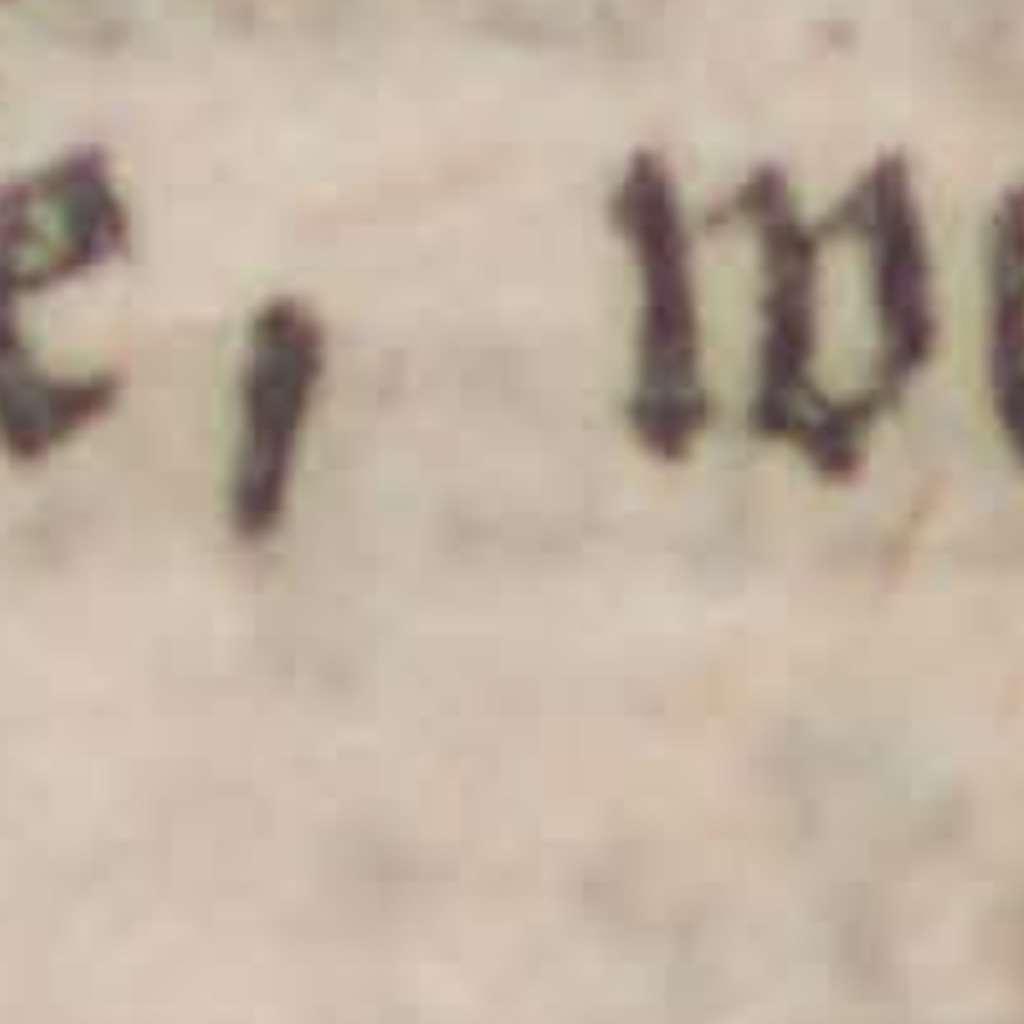 e, w